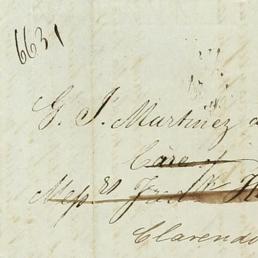 6631
G. J. Martinez
Care of
Messrs Fredk
Clarendo